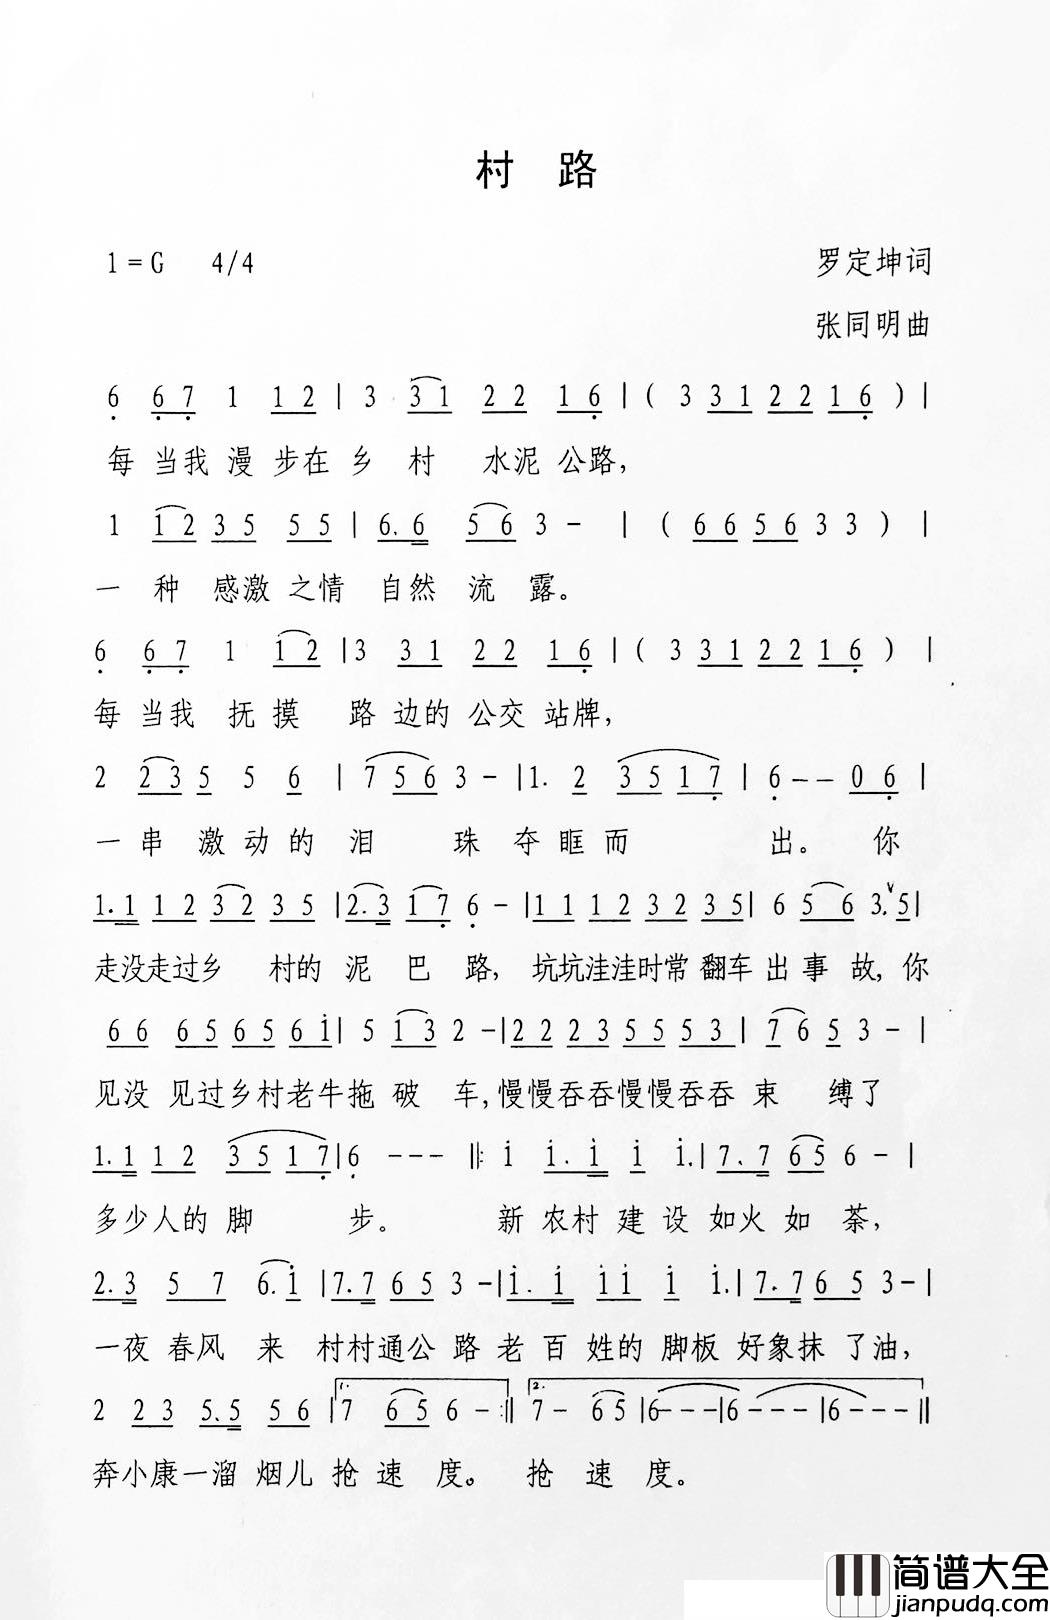 村 路
1=G 4/4 罗定坤词
张同明曲
6 6 7 1 1 2 | 3 3 1 2 2 1 6 | ( 3 3 1 2 2 1 6 ) |
每 当我 漫 步在 乡 村 水泥 公路,
1 1 2 3 5 5 5 | 6. 6 5 6 3 - | ( 6 6 5 6 3 3 ) |
一 种 感激 之情 自然 流 露。
6 6 7 1 1 2 | 3 3 1 2 2 1 6 | ( 3 3 1 2 2 1 6 ) |
每 当我 抚 摸 路 边的 公交 站牌,
2 2 3 5 5 6 | 7 5 6 3 - | 1. 2 3 5 1 7 | 6 - - 0 6 |
一 串 激 动 的 泪 珠 夺 眶 而 出。 你
1. 1 1 2 3 2 3 5 | 2. 3 1 7 6 - | 1 1 1 2 3 2 3 5 | 6 5 6 3. 5 |
走没走过乡 村的 泥 巴 路, 坑坑洼洼时常 翻车 出 事 故, 你
6 6 6 5 6 5 6 1 | 5 1 3 2 - | 2 2 2 3 5 5 5 3 | 7 6 5 3 - |
见没 见过乡村老牛拖 破 车, 慢慢吞吞慢慢吞吞 束 缚了
1. 1 1 2 3 5 1 7 | 6 - - - ‖: 1 1. 1 1 1. | 7. 7 6 5 6 - |
多少人的 脚 步。 新 农村 建 设 如火 如 荼,
2. 3 5 7 6. 1 | 7. 7 6 5 3 - | 1. 1 1 1 1 1. | 7. 7 6 5 3 - |
一夜 春风 来 村村通公 路 老 百 姓的 脚板 好象抹 了油,
2 2 3 5. 5 5 6 | 1. 7 6 5 6 - :‖ 2. 7 - 6 5 | 6 - - - | 6 - - - | 6 - - - ‖
奔小康一溜 烟儿 抢 速 度。 抢 速 度。
简谱大全
jianpudq.com